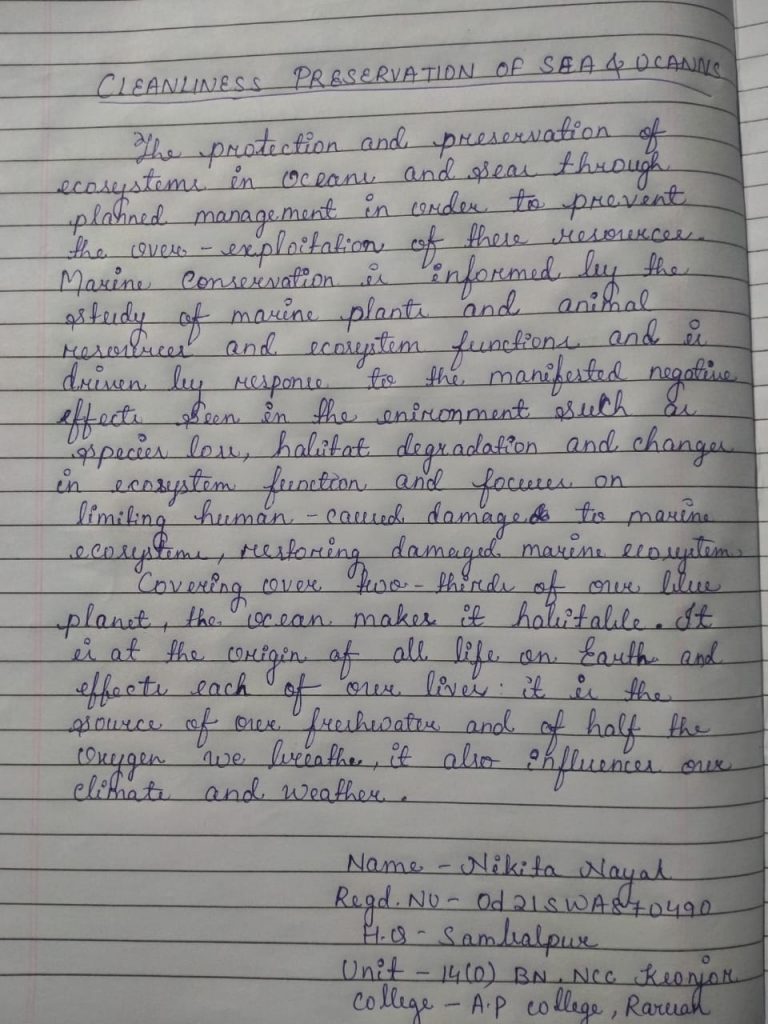 CLEANLINESS PRESERVATION OF SEA & OCANNS
The protection and preservation of
ecosystems in oceans and seas through
planned management in order to prevent
the over-exploitation of these resources.
Marine Conservation is informed by the
study of marine plants and animal
resources and ecosystem functions and is
driven by response to the manifested negative
effects seen in the enironment such as
species loss, habitat degradation and changes
in ecosystem function and focuses on
limiting human-caused damage to marine
ecosystems, restoring damaged marine ecosystem.
Covering over two-thirds of our blue
planet, the ocean makes it habitable. It
is at the origin of all life on Earth and
effects each of our lives: it is the
source of our freshwater and of half the
oxygen we breathe, it also influences our
climate and weather.
Name - Nikita Nayak
Regd. NO - Od21SWA870490
H.Q - Sambalpur
Unit - 14(O) BN, NCC Keonjor
College - A.P college, Raruan